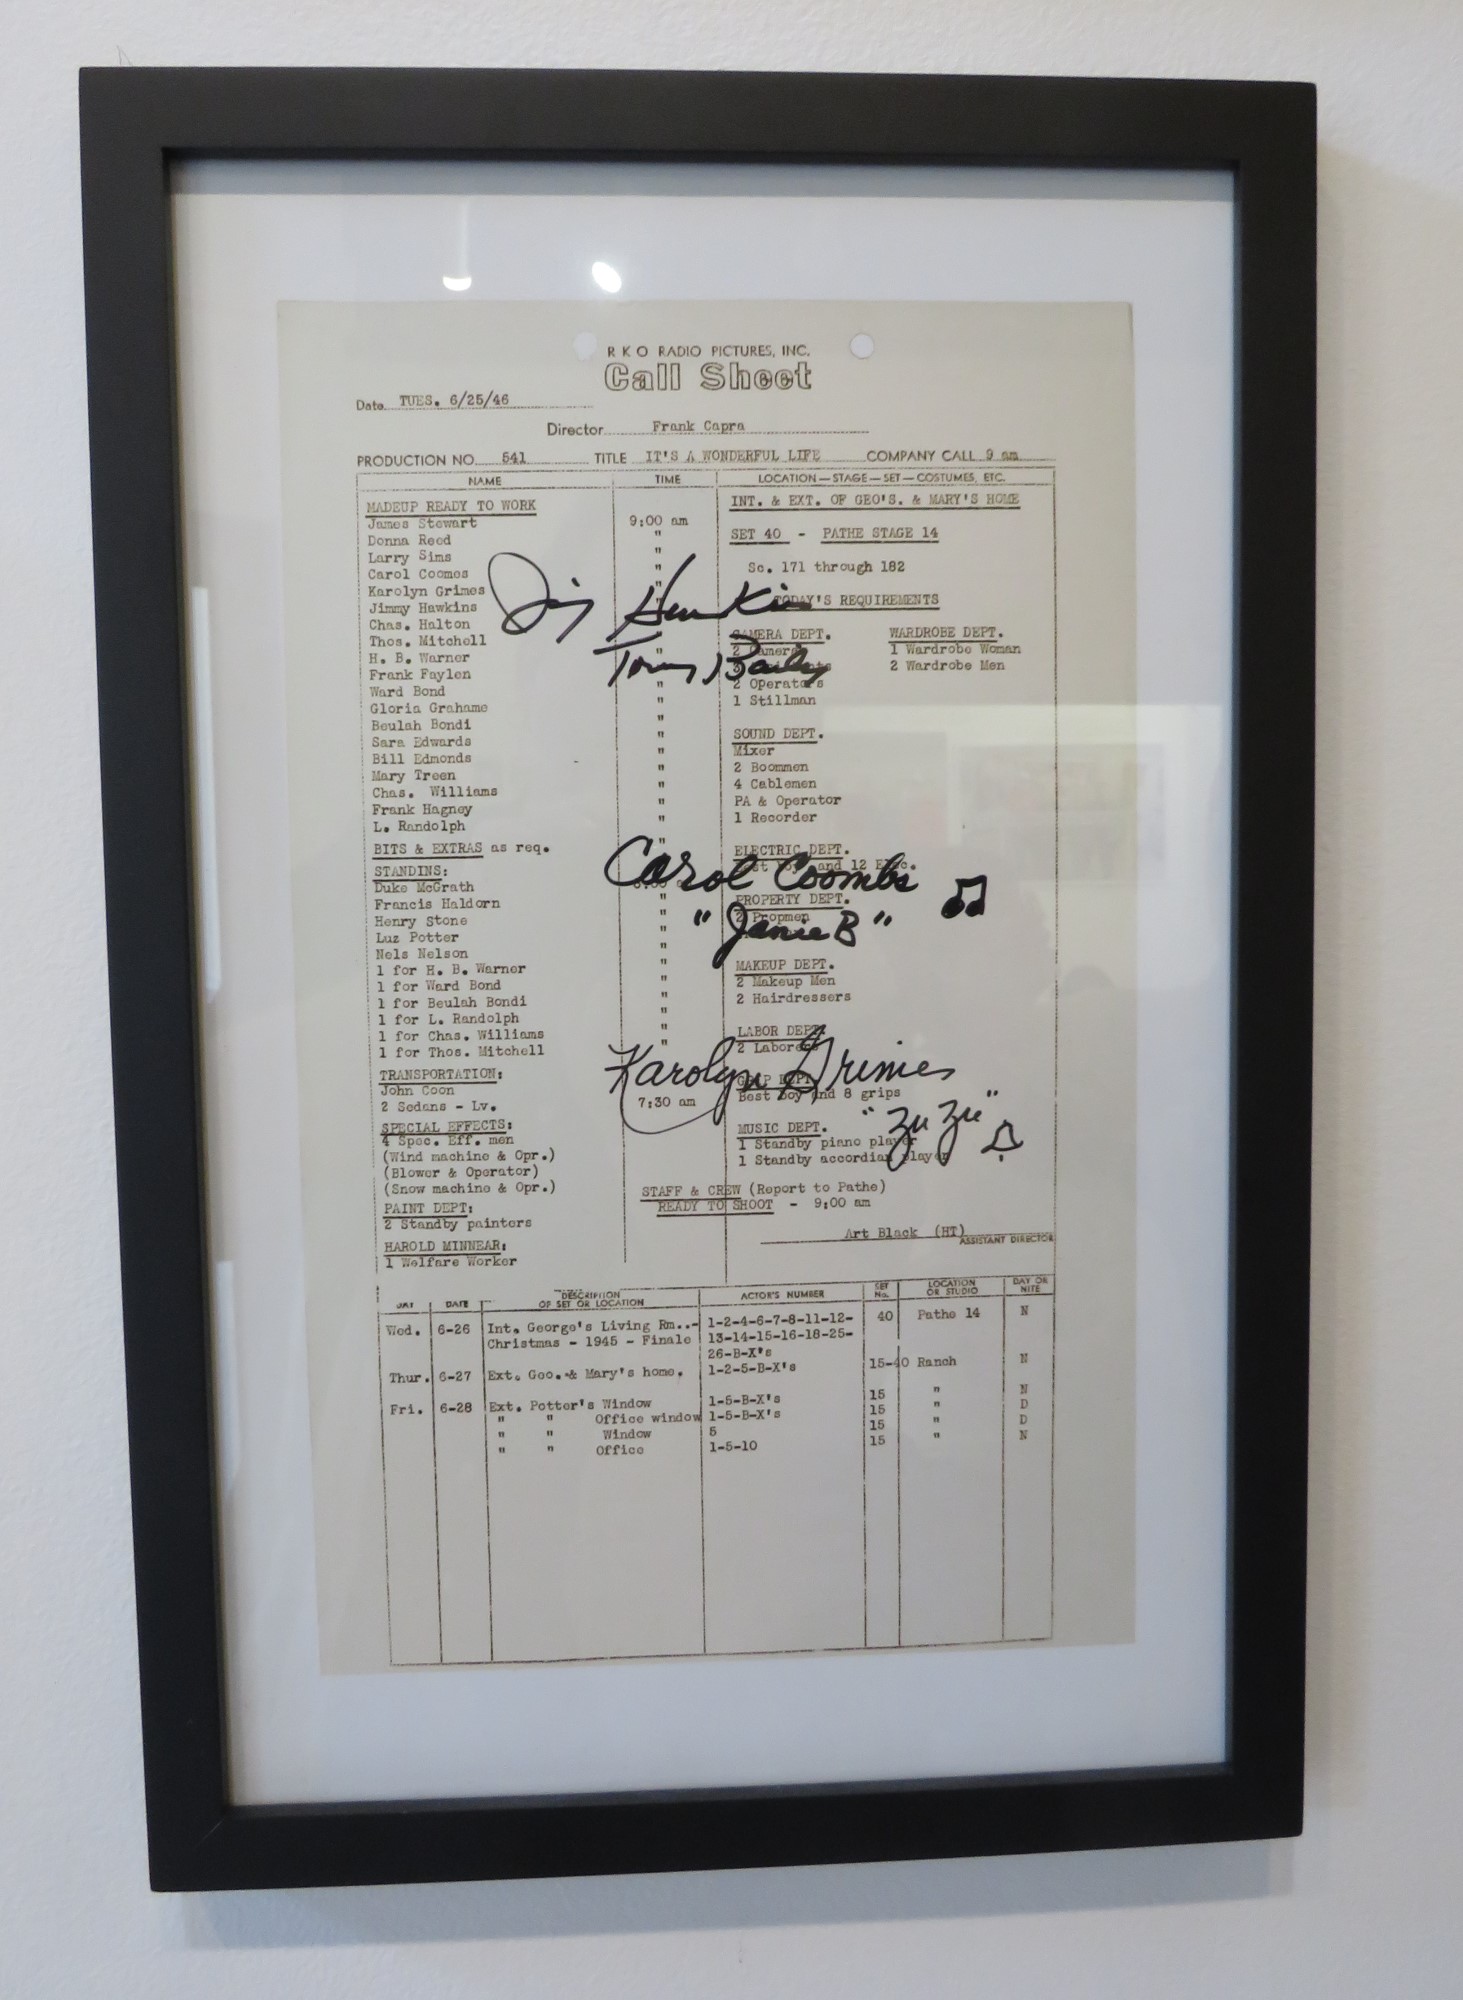 R K O RADIO PICTURES, INC.
Call Sheet
Date TUES. 6/25/46
Director Frank Capra
PRODUCTION NO. 541 TITLE IT'S A WONDERFUL LIFE COMPANY CALL 9 am
NAME TIME LOCATION — STAGE — SET — COSTUMES, ETC.
MADEUP READY TO WORK
James Stewart 9:00 am
Donna Reed "
Larry Sims "
Carol Coomes "
Karolyn Grimes "
Jimmy Hawkins
Chas. Halton
Thos. Mitchell "
H. B. Warner
Frank Faylen "
Ward Bond "
Gloria Grahame "
Beulah Bondi "
Sara Edwards "
Bill Edmonds "
Mary Treen "
Chas. Williams "
Frank Hagney "
L. Randolph "
BITS & EXTRAS as req. "
STANDINS:
Duke McGrath
Francis Haldorn "
Henry Stone "
Luz Potter "
Nels Nelson "
1 for H. B. Warner "
1 for Ward Bond "
1 for Beulah Bondi "
1 for L. Randolph "
1 for Chas. Williams "
1 for Thos. Mitchell "
TRANSPORTATION:
John Coon
2 Sedans - Lv. 7:30 am
SPECIAL EFFECTS:
4 Spec. Eff. men
(Wind machine & Opr.)
(Blower & Operator)
(Snow machine & Opr.)
PAINT DEPT:
2 Standby painters
HAROLD MINNEAR:
1 Welfare Worker
INT. & EXT. OF GEO'S. & MARY'S HOME
SET 40 - PATHE STAGE 14
Sc. 171 through 182
TODAY'S REQUIREMENTS
CAMERA DEPT.
2 Camera
2 Operators
1 Stillman
WARDROBE DEPT.
1 Wardrobe Woman
2 Wardrobe Men
SOUND DEPT.
Mixer
2 Boommen
4 Cablemen
PA & Operator
1 Recorder
ELECTRIC DEPT.
Best boy and 12 Elec.
PROPERTY DEPT.
2 Propmen
MAKEUP DEPT.
2 Makeup Men
2 Hairdressers
LABOR DEPT.
2 Laborers
GRIP DEPT.
Best boy and 8 grips
MUSIC DEPT.
1 Standby piano player
1 Standby accordian player
STAFF & CREW (Report to Pathe)
READY TO SHOOT - 9:00 am
Art Black (HT)
ASSISTANT DIRECTOR
Jimmy Hawkins
Tommy Bailey
Carol Coombs
"Janie B"
Karolyn Grimes
"Zu Zu"
DAY DATE DESCRIPTION OF SET OR LOCATION ACTOR'S NUMBER SET No. LOCATION OR STUDIO DAY OR NITE
Wed. 6-26 Int. George's Living Rm..- 1-2-4-6-7-8-11-12- 40 Pathe 14 N
Christmas - 1945 - Finale 13-14-15-16-18-25-
26-B-X's
Thur. 6-27 Ext. Geo. & Mary's home. 1-2-5-B-X's 15-40 Ranch N
Fri. 6-28 Ext. Potter's Window 1-5-B-X's 15 " N
" " Office window 1-5-B-X's 15 " D
" " Window 5 15 " D
" " Office 1-5-10 15 " N